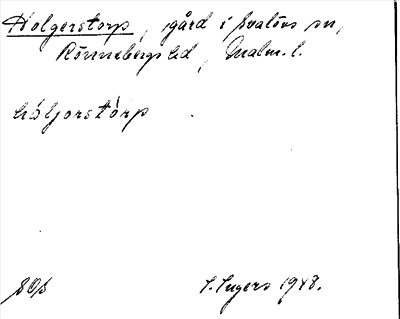 Holgerstorp, gård i Svalövs sn,
Rönnebergs hd, Malm. l.
håljorstårp
SOß
I. Ingers 1948.